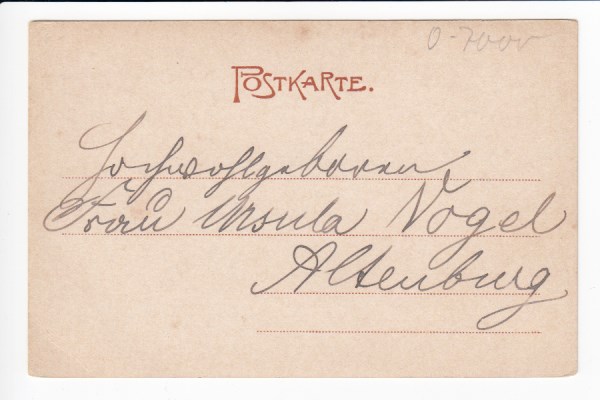 0-7000
POSTKARTE.
Hochwohlgeboren
Frau Ursula Vogel
Altenburg